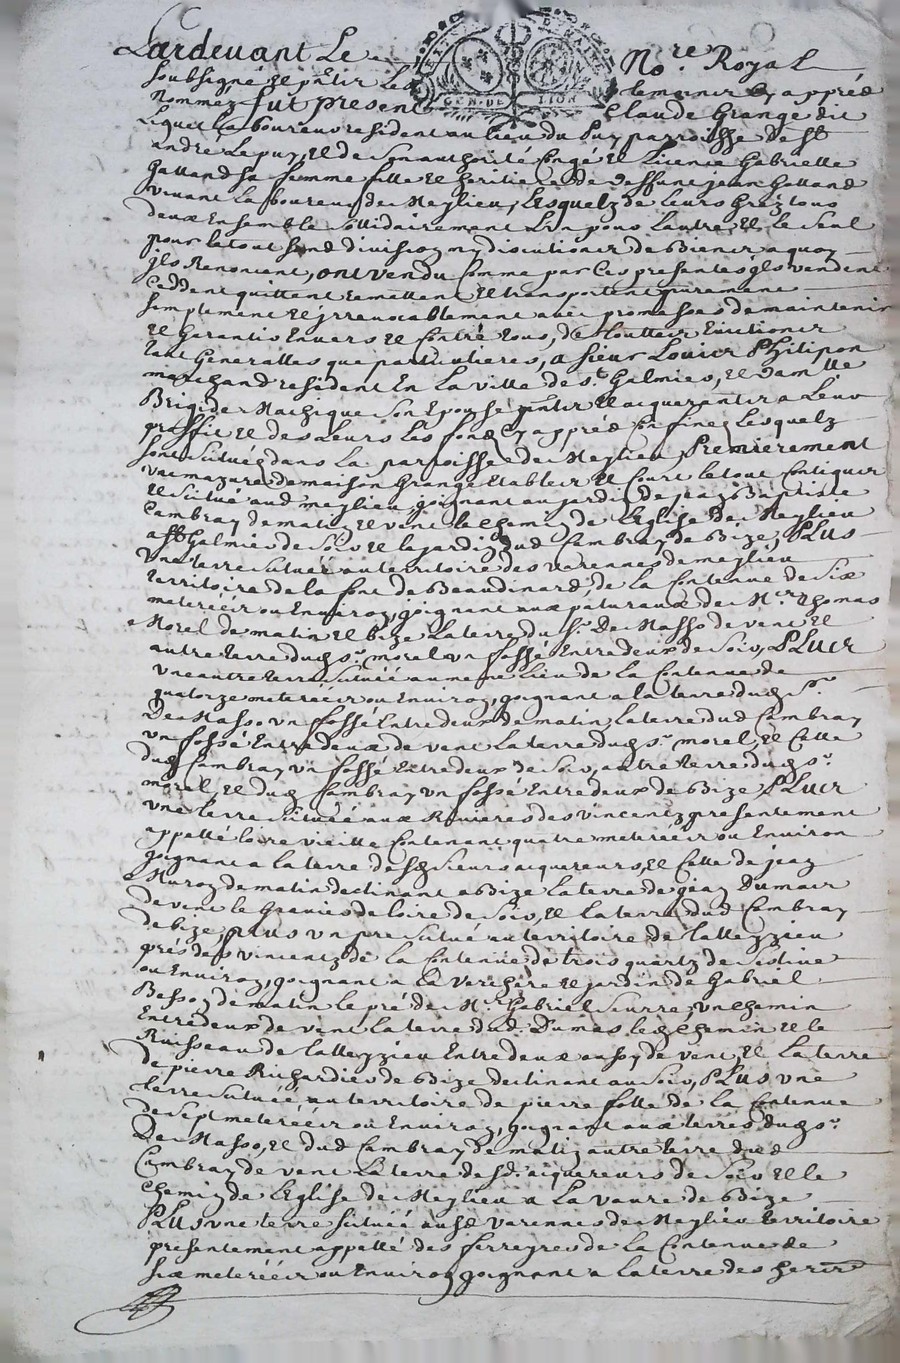 Pardevant Le No.re Royal
soubsigné et p̃ntz Les temoins cy apprés
nommez fut present Claude Grange dit
Liquet Laboureur resident au lieu du Puy parroisse de S.t
andré Le puy, Et de son authorité Congé Et Licence Gabrielle
Galland sa femme fille Et heritiere de deffunt jean Galland
vivant Laboureur de Meylieu, Lesquelz de leurs Grez tous
deux Ensemble sollidairement L'un pour L'autre Et le seul
pour le tout sans division ny discution de Biens a quoy
jls Renoncent, ont vendu Comme par Ces presentes jls vendent
Ceddent quittent remettent Et transportent purement
simplement Et jrrevocablement avec promesses de maintenir
Et Garantir Envers Et Contre tous, de touttes Evictions
tant Generalles que particulieres, a sieur Louis Philipon
marchand resident En La ville de S.t Galmier, Et dam.lle
Brigide son Epouse p̃ntz Et acquerantz a Leur
proffit Et des Leurs Les fonds cy apprés Confinez Lesquelz
sont situés dans La parroisse de Meylieu, Premierement
un mazure de maison Grange Etables Et Court le tout Contigus
Et situé aud meylieu joignant au jardin de jean Baptiste
Cambray de matin Et vent le chemin de L'Eglise de Meylieu
a S.t Galmier de soir Et le jardin dud Cambray de Bize, PLus
Une terre située au territoire des varennes de meylieu
territoire de la font de Beaudinard, de la Contenue de Six
meterées ou Environ, joignant aux paturaux de M.r Thomas
Morel de matin Et bize La terre du s.r De Masso de vent Et
autre terre dud s.r morel un fossé Entredeux de Soir, PLus
une autre terre située au meme Lieu de La Contenue de
quatorze meterées ou Environ, joignant a la terre dud s.r
De Masso, un fossé Entredeux de matin, La terre dud Cambray
un fossé Entredeux de vent La terre dud s.r morel, Et Celle
dud Cambray un fossé Entredeux de Soir, autre terre dud s.r
morel, Et dud Cambray un fossé Entredeux de Bize PLus
une terre située aux Rivieres de S vincent presentement
appellé loire vieille Contenant quatre meterées ou Environ
joignant a la terre desd sieurs acquereurs, Et Celle de jean
de matin declinant a Bize La terre de jean Dumas
de vent le Gravier de loire de Soir, Et La terre dud Cambray
de bize, PLUS un pré situé au territoire de
prés de S vincent de La Contenue de trois quartz de
ou Environ, joignant a La Verchere Et jardin de Gabriel
Basson de matin le pré de M.r Gabriel un chemin
Entredeux de vent La terre dud Dumas led chemin Et le
Ruisseau de Entredeux aussy de vent, Et La terre
de pierre Richardier de Bize declinant au Soir, PLUS une
terre située au territoire de pierre folle de La Contenue
de sept meterées ou Environ, joignant aux terres dud s.r
De Masso, Et dud Cambray de matin autre terre dud
Cambray de vent La terre desd acquereurs de Soir Et le
chemin de L'Eglise de Meylieu a La vaure de Bize
PLus une terre située ausd varennes de Meylieu territoire
presentement appellé des ferreyres de La Contenue de
six meterées ou Environ joignant a La terre des
GEN. DE LION